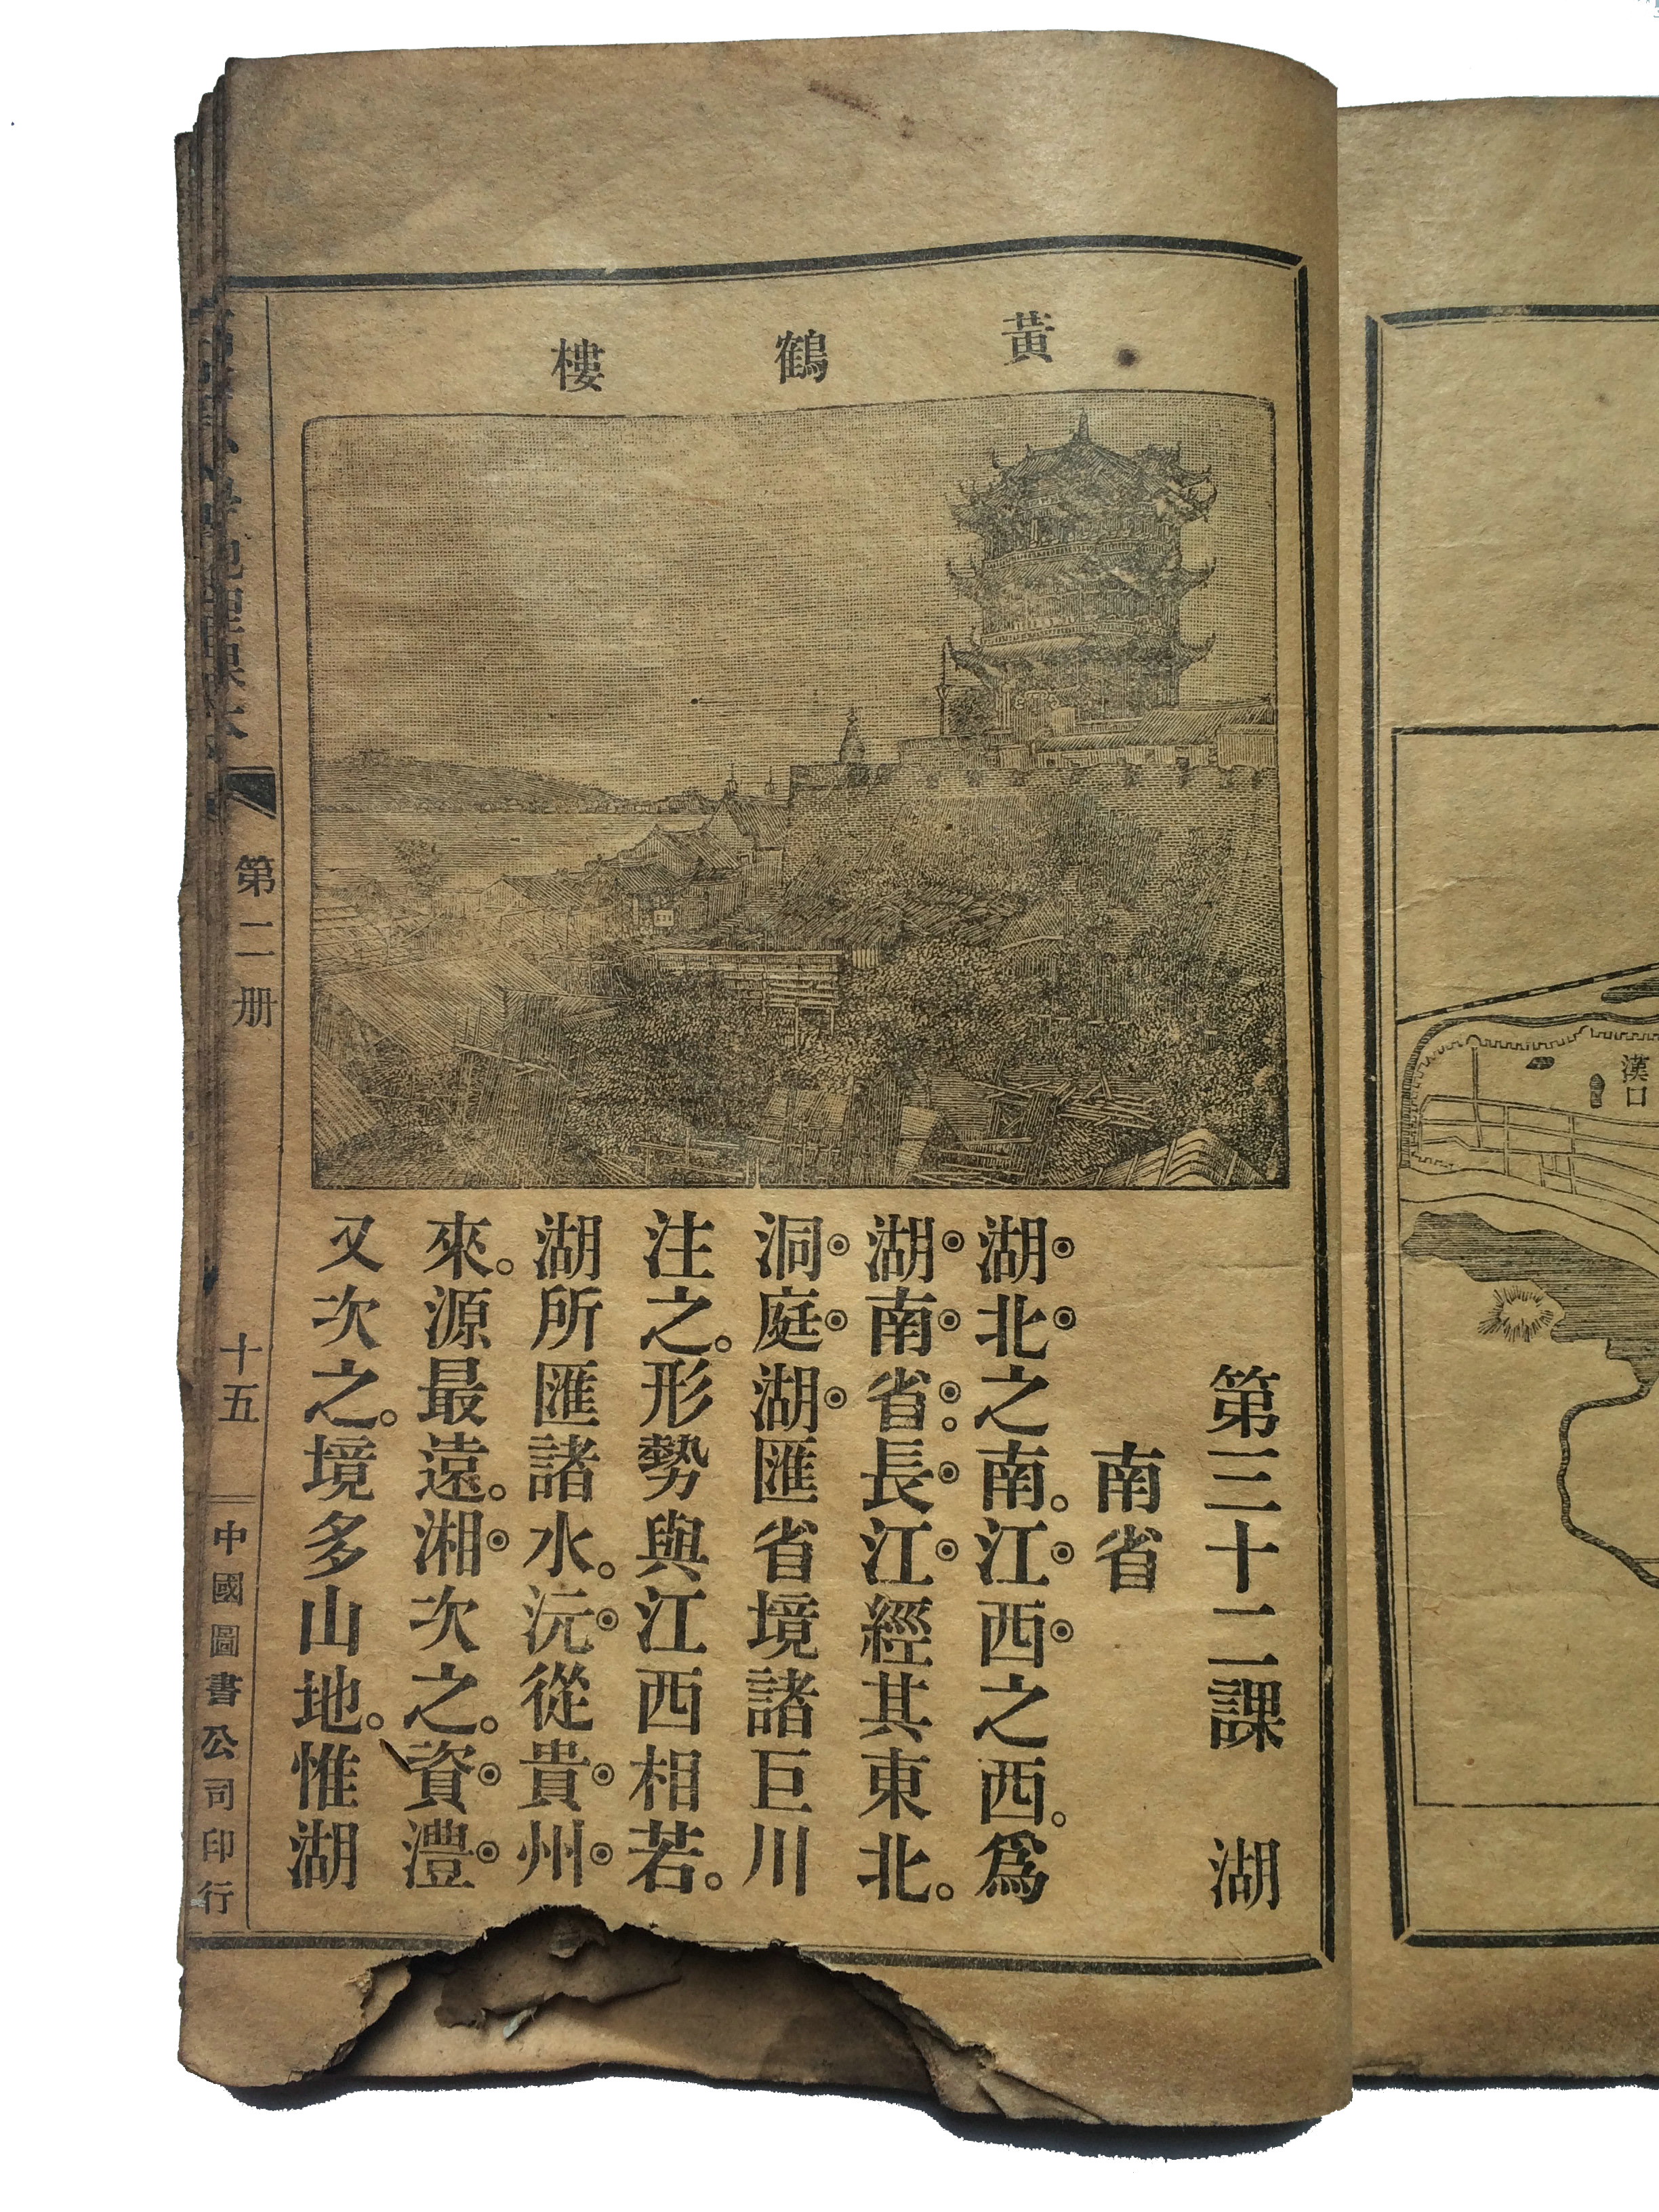 漢口
黃鶴樓
第三十二課 湖
南省
湖北之南。江西之西。爲
湖南省。長江經其東北。
洞庭湖匯省境諸巨川
注之。形勢與江西相若。
湖所匯諸水。沅從貴州
來。源最遠。湘次之。資澧
又次之。境多山地。惟湖
地理課本 第二册 十五 中國圖書公司印行